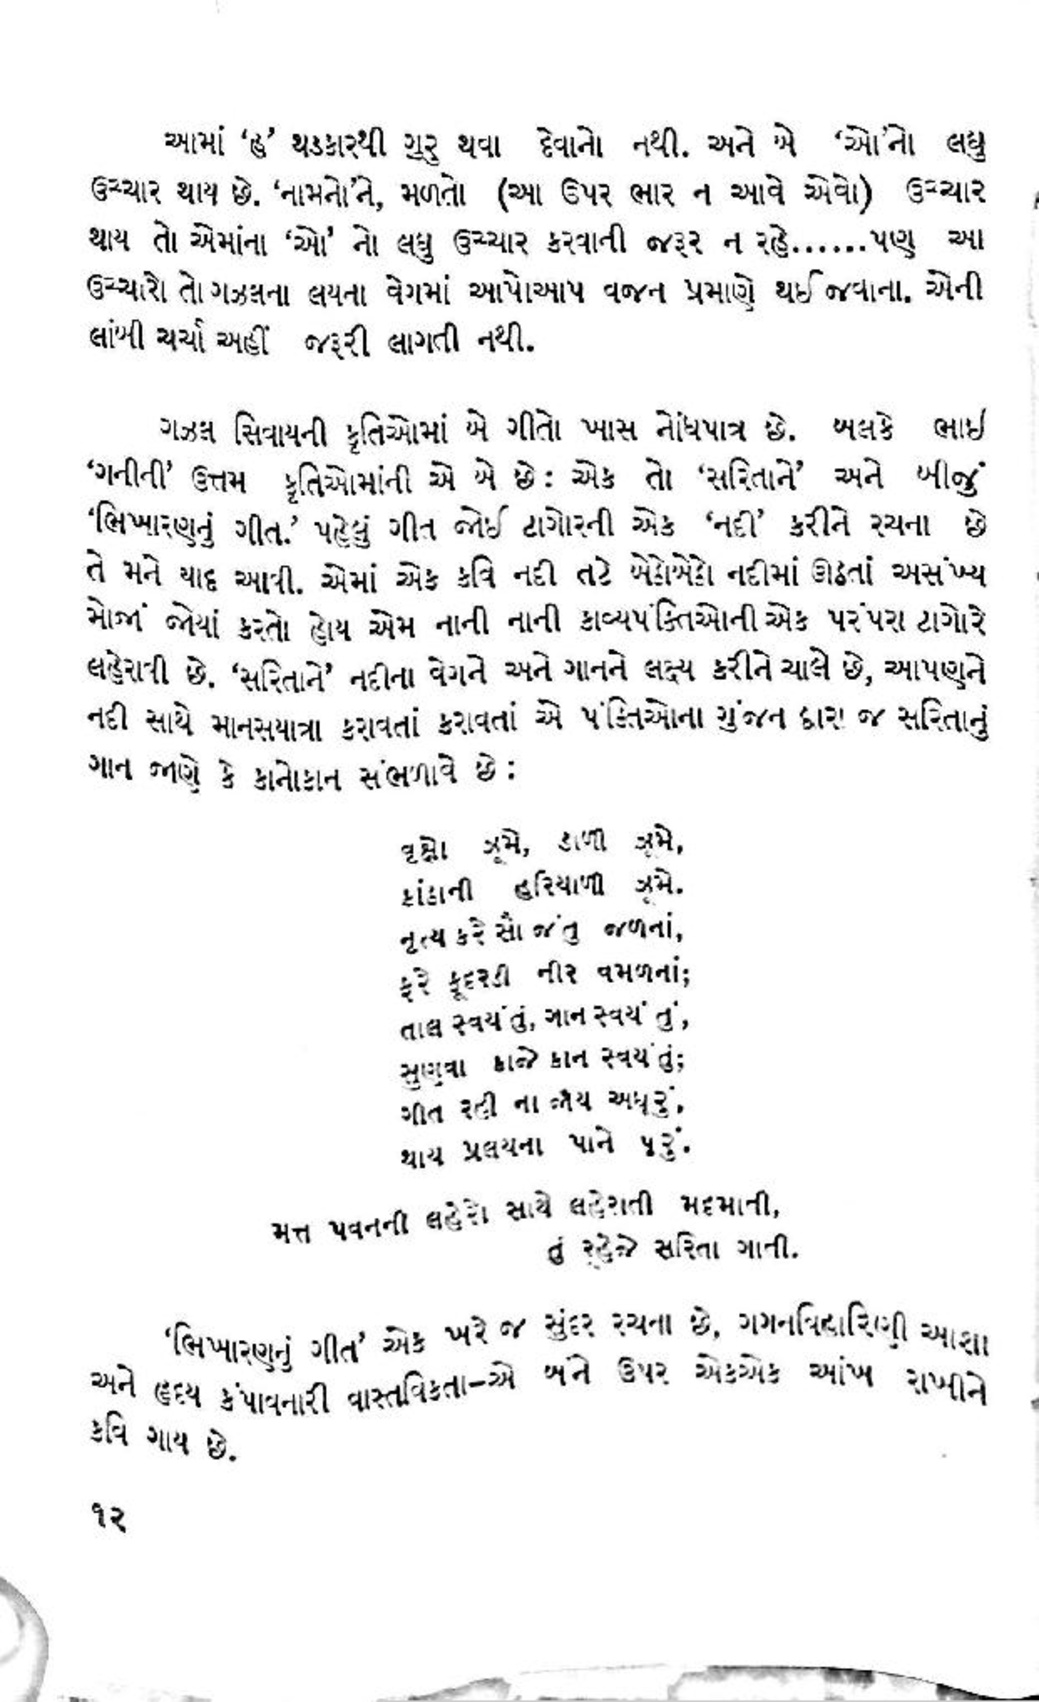 આમાં ‘હ’ થડકારથી ગુરુ થવા દેવાનો નથી. અને બે ‘ઓ’નો લઘુ
ઉચ્ચાર થાય છે. ‘નામનો’ને, મળતો (આ ઉપર ભાર ન આવે એવો) ઉચ્ચાર
થાય તો એમાંના ‘ઓ’ નો લઘુ ઉચ્ચાર કરવાની જરૂર ન રહે......પણ આ
ઉચ્ચારો તો ગઝલના લયના વેગમાં આપોઆપ વજન પ્રમાણે થઈ જવાના. એની
લાંબી ચર્ચા અહીં જરૂરી લાગતી નથી.
ગઝલ સિવાયની કૃતિઓમાં બે ગીતો ખાસ નોંધપાત્ર છે. બલકે ભાઈ
‘ગનીની’ ઉત્તમ કૃતિઓમાંની એ બે છે: એક તો ‘સરિતાને’ અને બીજું
‘ભિખારણનું ગીત.’ પહેલું ગીત જોઈ ટાગોરની એક ‘નદી’ કરીને રચના છે
તે મને યાદ આવી. એમાં એક કવિ નદી તટે બેઠોબેઠો નદીમાં ઊઠતાં અસંખ્ય
મોજાં જોયાં કરતો હોય એમ નાની નાની કાવ્યપંક્તિઓની એક પરંપરા ટાગોરે
લહેરાવી છે. ‘સરિતાને’ નદીના વેગને અને ગાનને લક્ષ્ય કરીને ચાલે છે, આપણને
નદી સાથે માનસયાત્રા કરાવતાં કરાવતાં એ પંક્તિઓના ગુંજન દ્વારા જ સરિતાનું
ગાન જાણે કે કાનોકાન સંભળાવે છે:
વૃક્ષો ઝૂમે, ડાળી ઝૂમે,
કાંઠાની હરિયાળી ઝૂમે.
નૃત્ય કરે સૌ જંતુ જળનાં,
ફરે કૂદરડી નીર વમળનાં;
તાલ સ્વયં તું, ગાન સ્વયં તું,
સુણવા કાજે કાન સ્વયં તું;
ગીત રહી ના જાય અધૂરું,
થાય પ્રલયના પાને પૂરું.
મત્ત પવનની લહેરો સાથે લહેરાતી મદમાતી,
તું રહેજે સરિતા ગાતી.
‘ભિખારણનું ગીત’ એક ખરે જ સુંદર રચના છે, ગગનવિહારિણી આશા
અને હૃદય કંપાવનારી વાસ્તવિકતા-એ બંને ઉપર એકએક આંખ રાખીને
કવિ ગાય છે.
૧૨